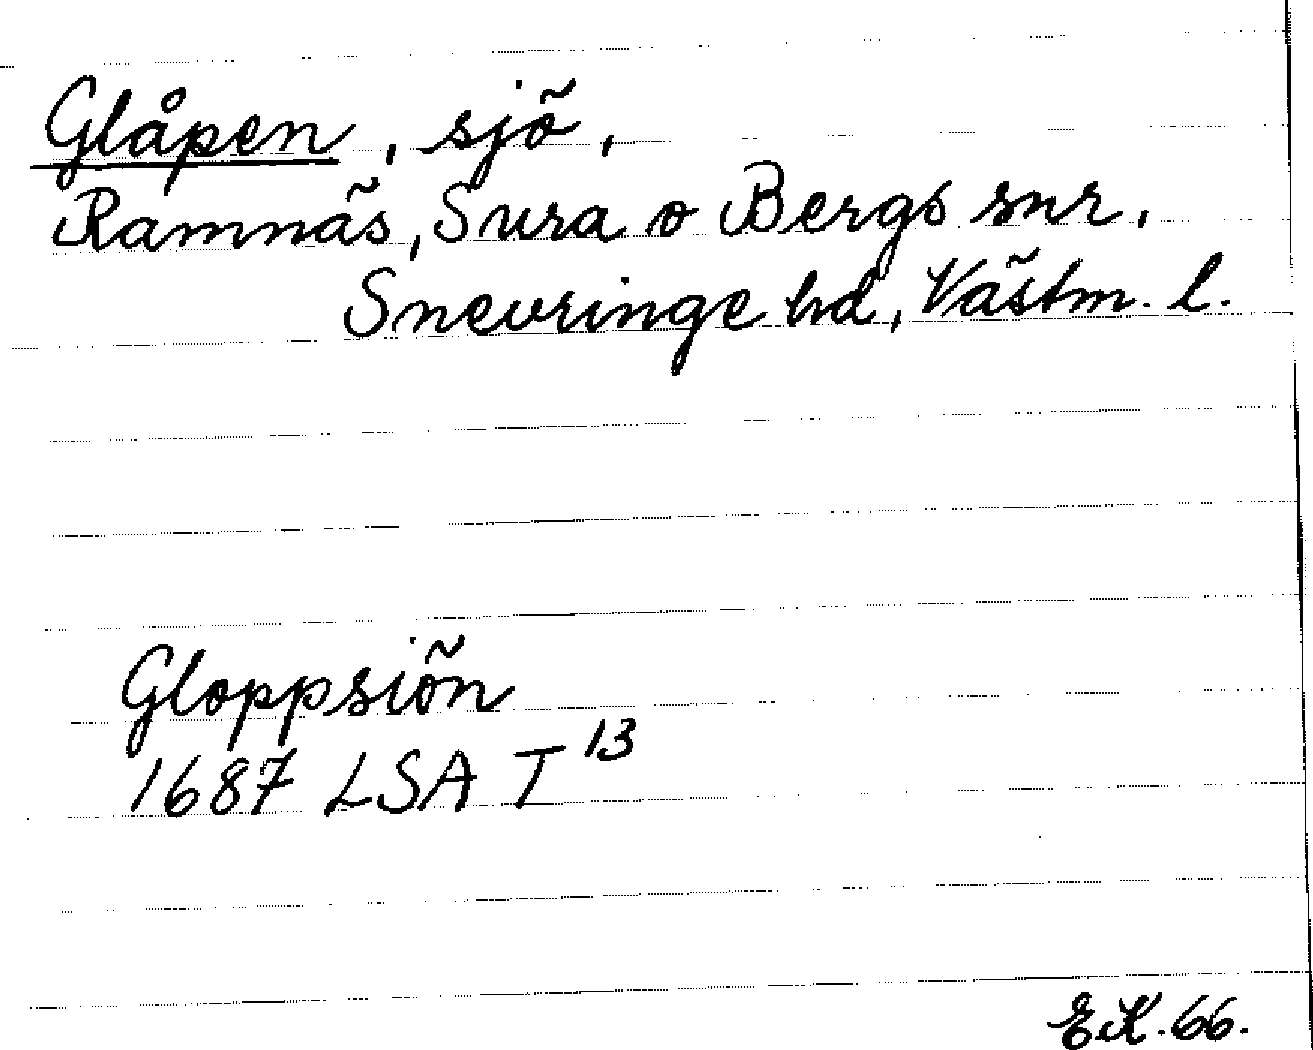 Glåpen, sjö,
Ramnäs, Sura o Bergs snr,
Snevringe hd, Västm. l.
Gloppsiön
1687 LSA T 13
E.K. 66.